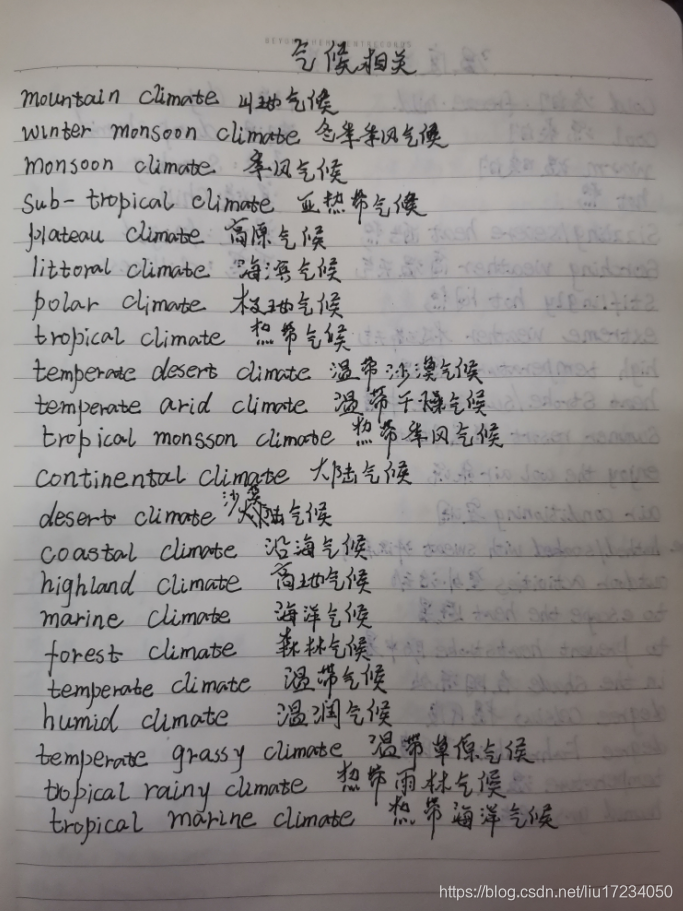 气候相关
mountain climate 山地气候
winter monsoon climate 冬半年风气候
monsoon climate 季风气候
sub-tropical climate 亚热带气候
plateau climate 高原气候
littoral climate 海滨气候
polar climate 极地气候
tropical climate 热带气候
temperate desert climate 温带沙漠气候
temperate arid climate 温带干燥气候
tropical monsson climate 热带季风气候
continental climate 大陆气候
desert climate 沙漠气候
coastal climate 沿海气候
highland climate 高地气候
marine climate 海洋气候
forest climate 森林气候
temperate climate 温带气候
humid climate 温润气候
temperate grassy climate 温带草原气候
tropical rainy climate 热带雨林气候
tropical marine climate 热带海洋气候
https://blog.csdn.net/liu17234050